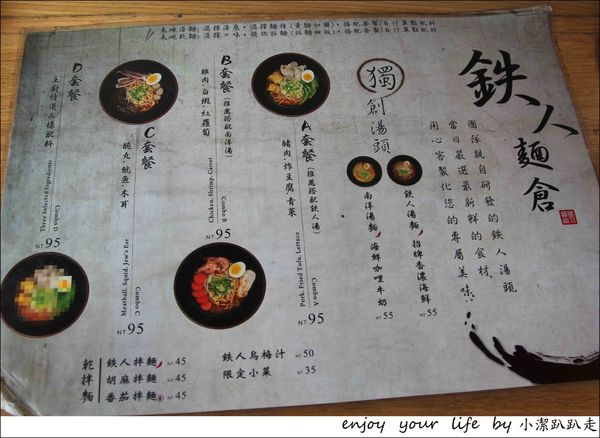 鉄人麵倉
團隊親自研發的鉄人湯頭
當日嚴選最新鮮的食材
用心客製化您的專屬美味
獨創湯頭
鉄人湯麵 招牌香濃海鮮
NT 55
南洋湯麵 海鮮咖哩牛奶
NT 55
A套餐(推薦搭配鉄人湯)
豬肉·炸豆腐·青菜
Combo A
Pork, Fried Tofu, Lettuce
NT 95
B套餐(推薦搭配南洋湯)
雞肉·白蝦·紅蘿蔔
Combo B
Chicken, Shrimp, Carrot
NT 95
C套餐
脆丸·魷魚·木耳
Combo C
Meatball, Squid, Jew's Ear
NT 95
D套餐
主廚特選三樣配料
Combo D
Three Selected Ingredients
NT 95
乾拌麵
鉄人拌麵 NT 45
胡麻拌麵 NT 45
番茄拌麵 NT 45
鉄人烏梅汁 NT 50
限定小菜 NT 35
enjoy your life by 小潔趴趴走